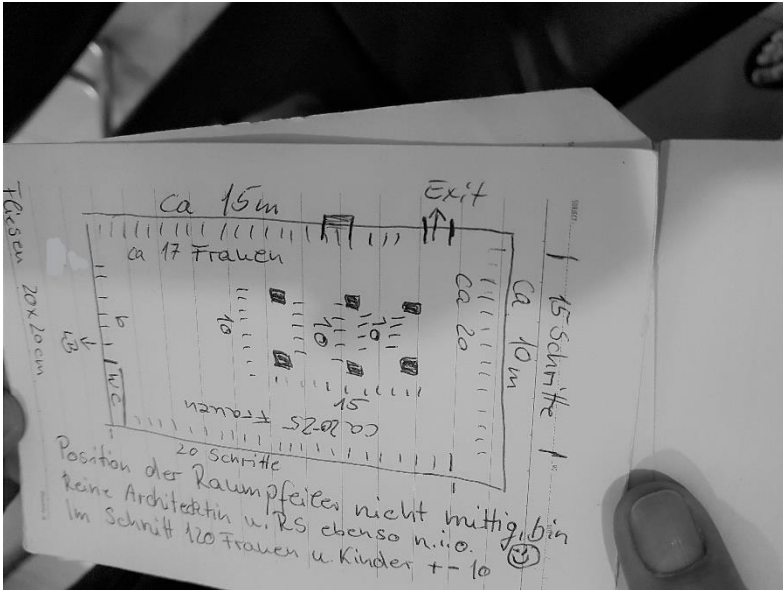 Ca 15m
Exit
ca 17 Frauen
| 15 Schritte |
Ca 10m
Ca 20
10
10
10
15
6
WC
ca 20-25 Frauen
20 Schritte
Fliesen 20x20cm
Position der Raumpfeiler nicht mittig, bin
keine Architektin u. RS ebenso n.i.o. ☺
Im Schnitt 120 Frauen u. Kinder +- 10